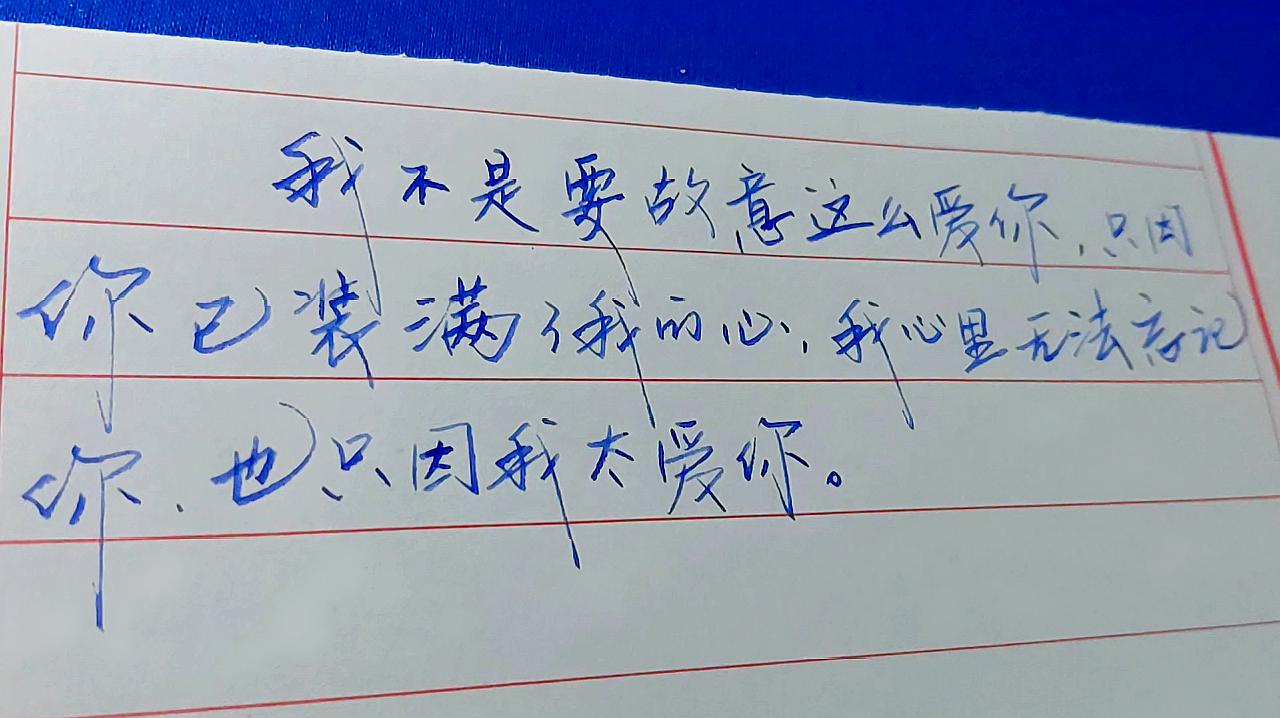 我不是要故意这么爱你,只因
你已装满了我的心,我心里无法忘记
你,也只因我太爱你。